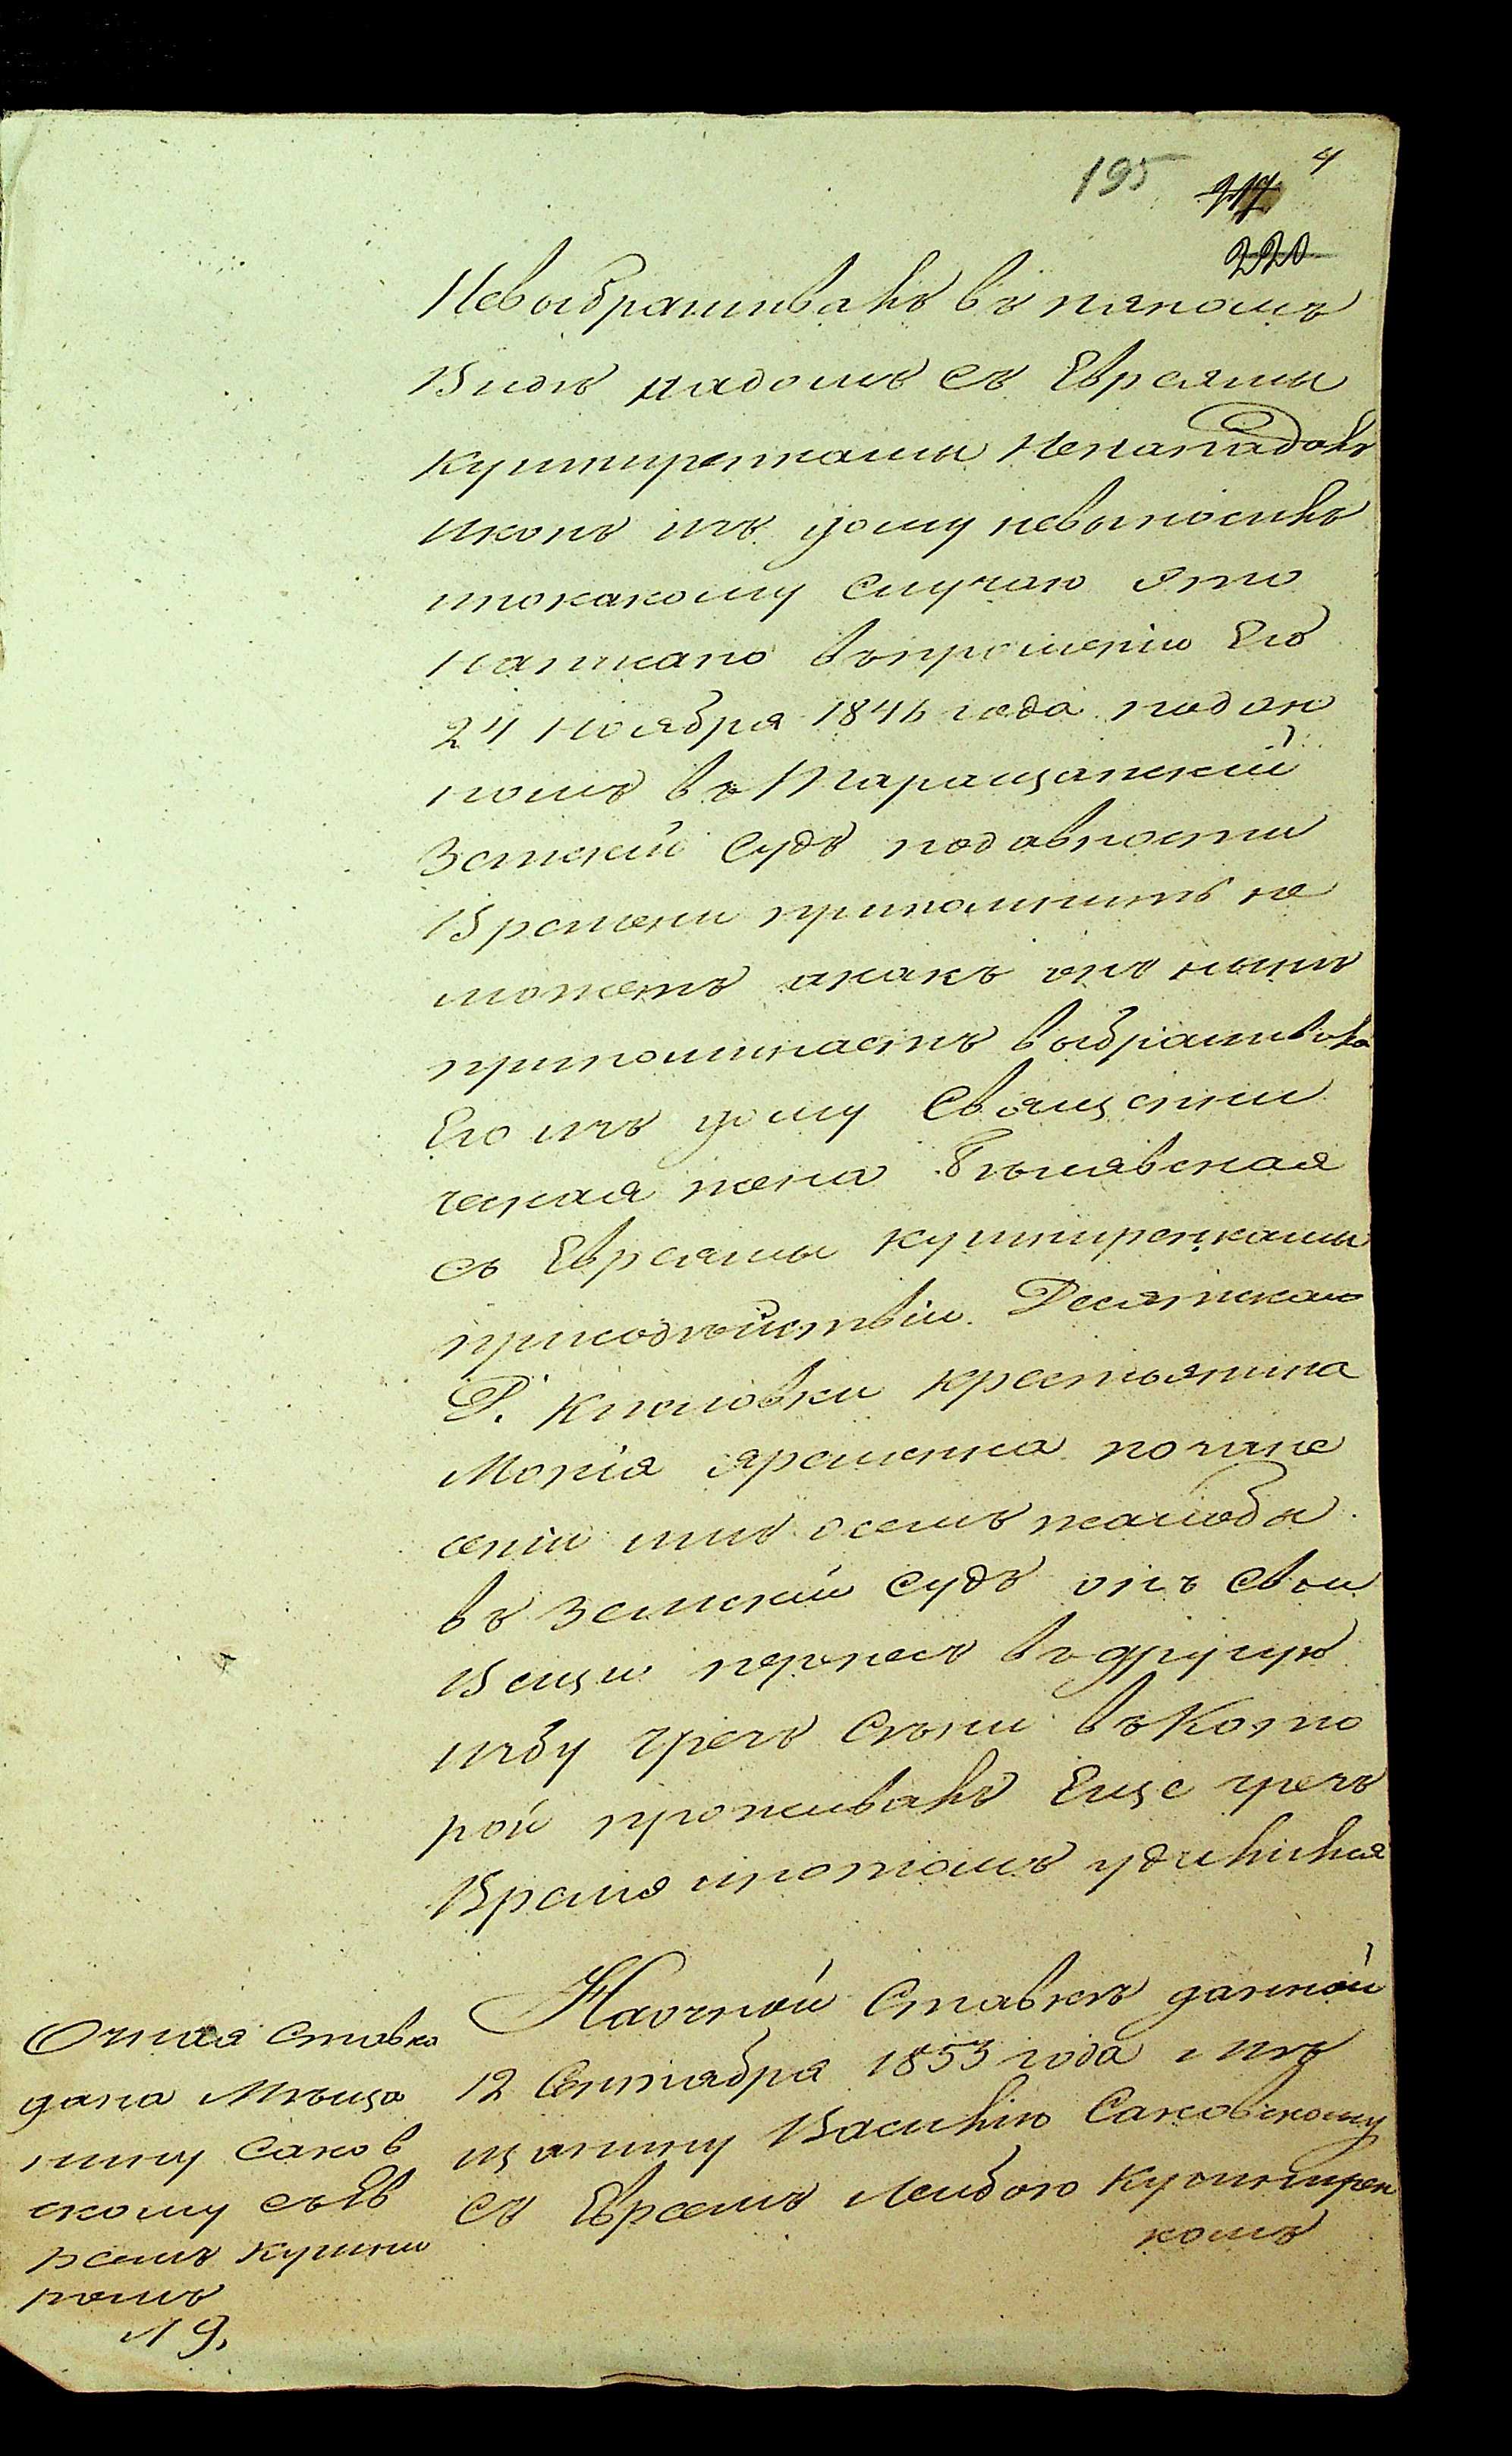 195 217 4
220
Невыбрасывалъ въ пяномъ
Видѣ надомъ съ Евреями
Кушниренками Ненападалъ
иконъ изъ дому невыносилъ
ипокакому случаю Это
написано въпрошеніи Его
24 Ноября 1846 года подан
номъ въ Таращанскій
Земскій Судъ подавности
Времени припомнить не
можетъ акакъ онъ нынѣ
припоминаетъ выбрасывала
Его изъ дому Священни
ческая жена
съ Евреями Кушниренками
присодѣйствіи Десятскаго
Д. Кисловки крестьянина
Мокія Яременка позане
сеніи имъ осемъ жалобы
въ Земскій Судъ онъ свои
Вещи перенесъ въдругую
избу чрезъ Сѣни въ Кото
рой проживалъ Еще чрезъ
Время ипотомъ удалился
Наочной Ставкѣ данной
12 Сентября 1853 года Мѣ
щанину Василію Саковскому
съ Евреемъ Лейбою Кушнирен
комъ
Очная ставка
дана Мѣща
нину Саков
скому съЕв
реемъ Кушни
ромъ
19.